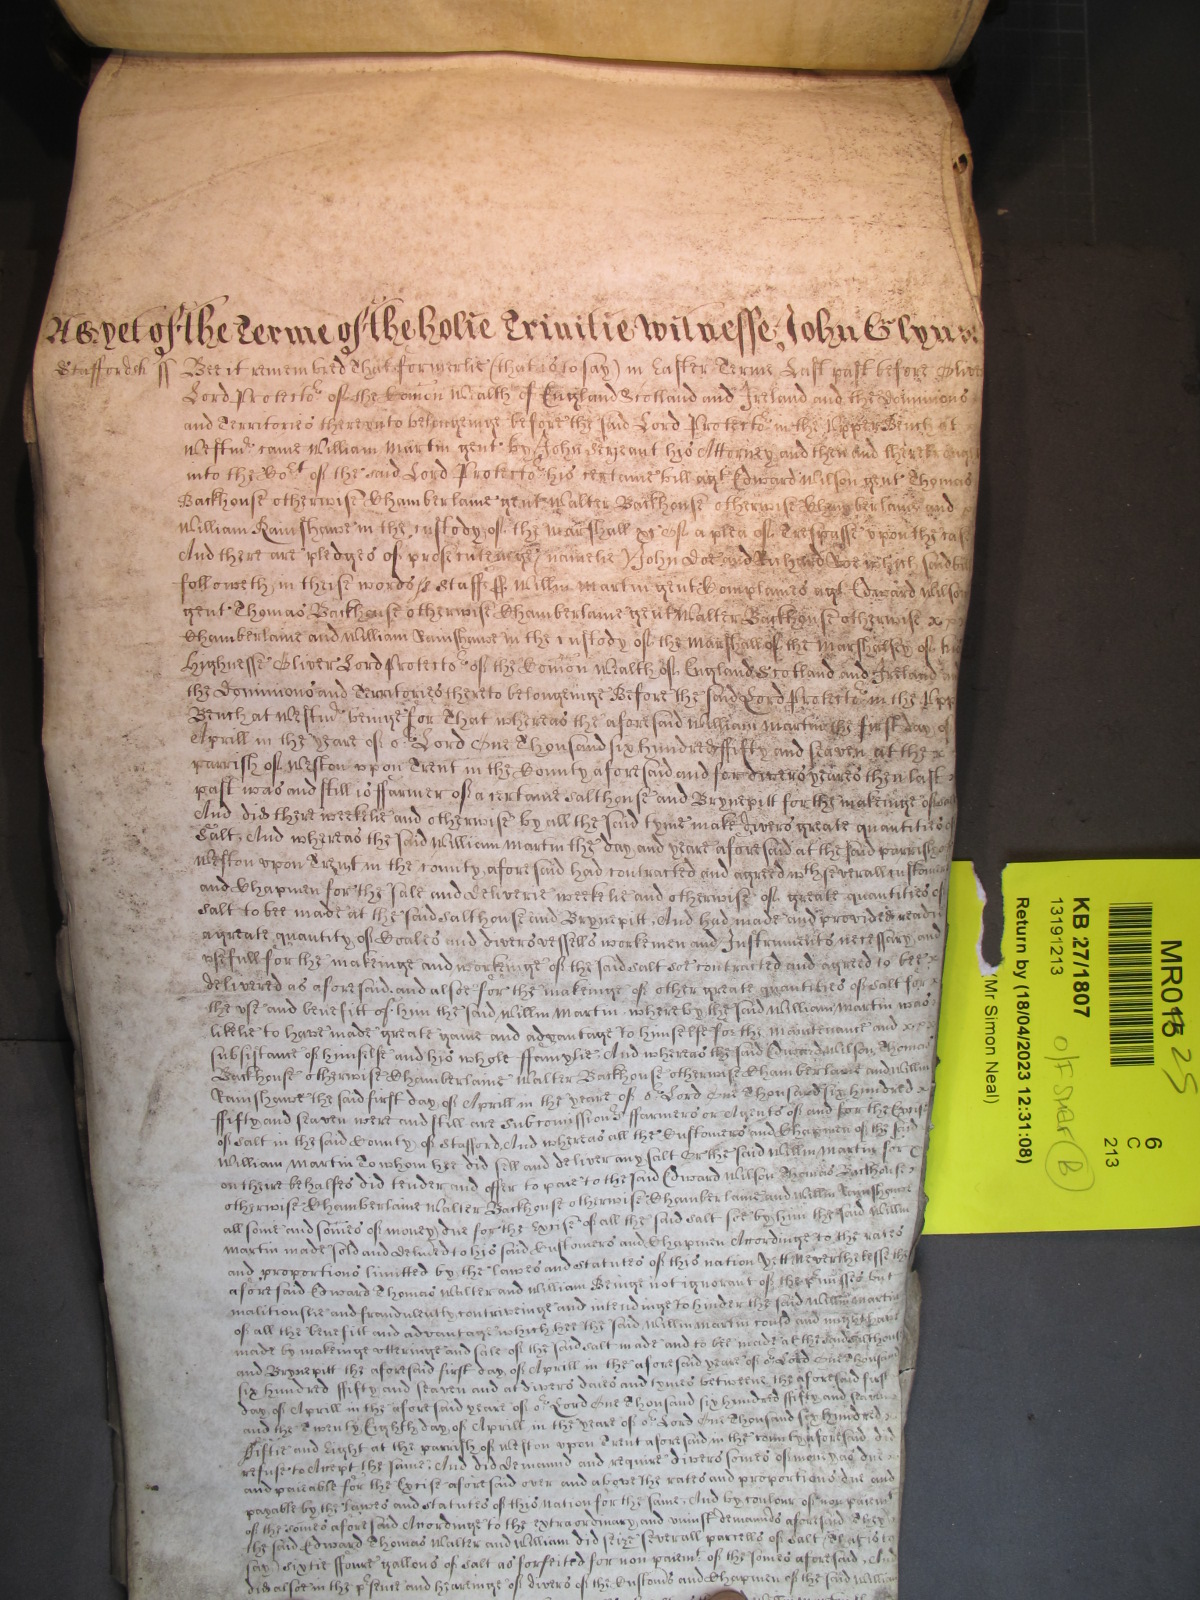 As yet of the Terme of the holie Trinitie Witnesse John Glyn
Staffordsh ss Bee it remembred That formerlie (that is to say) in Easter Terme Last past before Oliver
Lord Protector of the Comon Wealth of England Scotland and Ireland and the Dominions
and Territories thereunto belonginge before the said Lord Protector in the Upper Bench at
Westmr came William Martin gent by John Serjeant his Attorney and then and there
into the Cort of the said Lord Protector his certaine bill agt Edward Wilson gent Thomas
Backhouse otherwise Chamberlaine gent Walter Backhouse otherwise Chamberlaine and
William Ramshawe in the custody of the Marshall &c of a plea of Trespasse vpon the case
And there are pledges of prosecuteinge (namelie) John Doe and Richard Roe which said bill
followeth in theise words ss Staff ss Willm Martin gent Complaines agt Edward Wilson
gent Thomas Backhouse otherwise Chamberlaine gent Walter Backhouse otherwise
Chamberlaine and William Ramshawe in the custody of the Marshall of the Marshalsey of his
Highnesse Oliver Lord Protector of the Comon Wealth of England Scotland and Ireland and
the Dominions and Territories thereto belonginge Before the said Lord Protector in the Upp
Bench at Westmr beinge for That whereas the aforesaid William Martin the first day of
Aprill in the yeare of or Lord One Thousand six hundred ffifty and seaven at the
parrish of Weston vpon Trent in the County aforesaid and for divers yeares then last
past was and still is ffarmer of a certaine Salthouse and Brynepitt for the makeinge of Salt
And did there weekelie and otherwise by all the said tyme make divers greate quantities of
Salt, And whereas the said William Martin the day and yeare aforesaid at the said parrish of
Weston vpon Trent in the county aforesaid had contracted and agreed wth severall customers
and Chapmen for the sale and deliverie weekelie and otherwise of greate quantities of
Salt to bee made at the said Salthouse and Brynepitt, And had made and provided readie
a greate quantity of Coales and divers vessells workemen and Instruments necessary and
vsefull for the makeinge and workeinge of the said Salt soe contracted and agreed to bee
delivered as aforesaid and alsoe for the makeinge of other greate quantities of Salt for
the vse and benefitt of him the said Willm Martin whereby the said William Martin was
likelie to have made greate gaine and advantage to himselfe for the Maintenance and
subsistance of himselfe and his whole ffamylie And whereas the said Edward Wilson Thomas
Backhouse otherwise Chamberlaine Walter Backhouse otherwise Chamberlaine and Willm
Ramshawe the said first day of Aprill in the yeare of or Lord One Thousand six hundred
ffifty and seaven were and still are Subcomissioners ffarmers or Agents of and for the Excise
of Salt in the said County of Stafford, And whereas all the Customers and Chapmen of the said
William Martin To whom hee did sell and deliver any salt Or the said Willm Martin for
on theire behalfes did tender and offer to paie to the said Edward Wilson Thomas Backhouse
otherwise Chamberlaine Walter Backhouse otherwise Chamberlaine and Willm Ramshawe
all some and somes of money due for the Excise of all the said Salt soe by him the said Willm
Martin made sold and delivred to his said Customers and Chapmen Accordinge to the rates
and proportions limitted by the lawes and Statutes of this nation Yett Neverthelesse the
aforesaid Edward Thomas Walter and William Beinge not ignorant of the p'misses but
malitiouslie and fraudulently contriveinge and intendinge to hinder the said Willm Martin
of all the benefitt and advantage which hee the said Willm Martin could and might have
made by makeinge vtteringe and sale of the said Salt made and to bee made at the said Salthouse
and Brynepitt the aforesaid first day of Aprill in the aforesaid yeare of or Lord One Thousand
six hundred ffifty and seaven and at divers daies and tymes betweene the aforesaid first
day of Aprill in the aforesaid yeare of or Lord One Thousand six hundred ffifty and seaven
and the Twenty Eighth day of Aprill in the yeare of or Lord One Thousand six hundred
ffiftie and Eight at the parrish of Weston vpon Trent aforesaid in the county aforesaid, did
refuse to Accept the same, And did demannd and require divers somes of money as due
and paieable for the Excise aforesaid over and above the rates and proportions due and
payable by the Lawes and Statutes of this Nation for the same, And by coulour of non paiemt
of the somes aforesaid Accordinge to the extraordinary and vniust demannds aforesaid They
the said Edward Thomas Walter and William did seize severall parcells of Salt (That is to
say) Sixtie ffowre gallons of Salt as forfeited for non paiemt of the somes aforesaid, And
did alsoe in the p'sence and heareinge of divers of the Customers and Chapmen of the said William
MR015 25
6
C
213
KB 27/1807
13191213
Return by (18/04/2023 12:31:08)
(Mr Simon Neal)